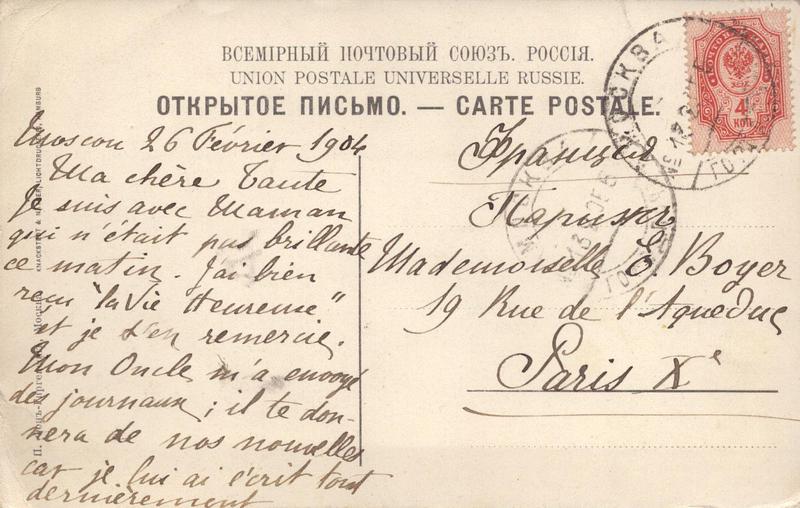 ВСЕМІРНЫЙ ПОЧТОВЫЙ СОЮЗЪ. РОССІЯ.
UNION POSTALE UNIVERSELLE RUSSIE.
ОТКРЫТОЕ ПИСЬМО. — CARTE POSTALE.
Moscou 26 Février 1904
Ma chère Tante
Je suis avec Maman
qui n'était pas brillante
ce matin. J'ai bien
reçu "la Vie Heureuse"
et je t'en remercie.
Mon Oncle m'a envoyé
des journaux; il te don-
nera de nos nouvelles
car je lui ai écrit tout
dernièrement
Франція
Парижъ
Mademoiselle E. Boyer
19 Rue de l'Aqueduc
Paris Xe
4
КОП
МОСКВА
KNACKSTEDT & NÄTHER, LICHTDRUCKEREI, HAMBURG